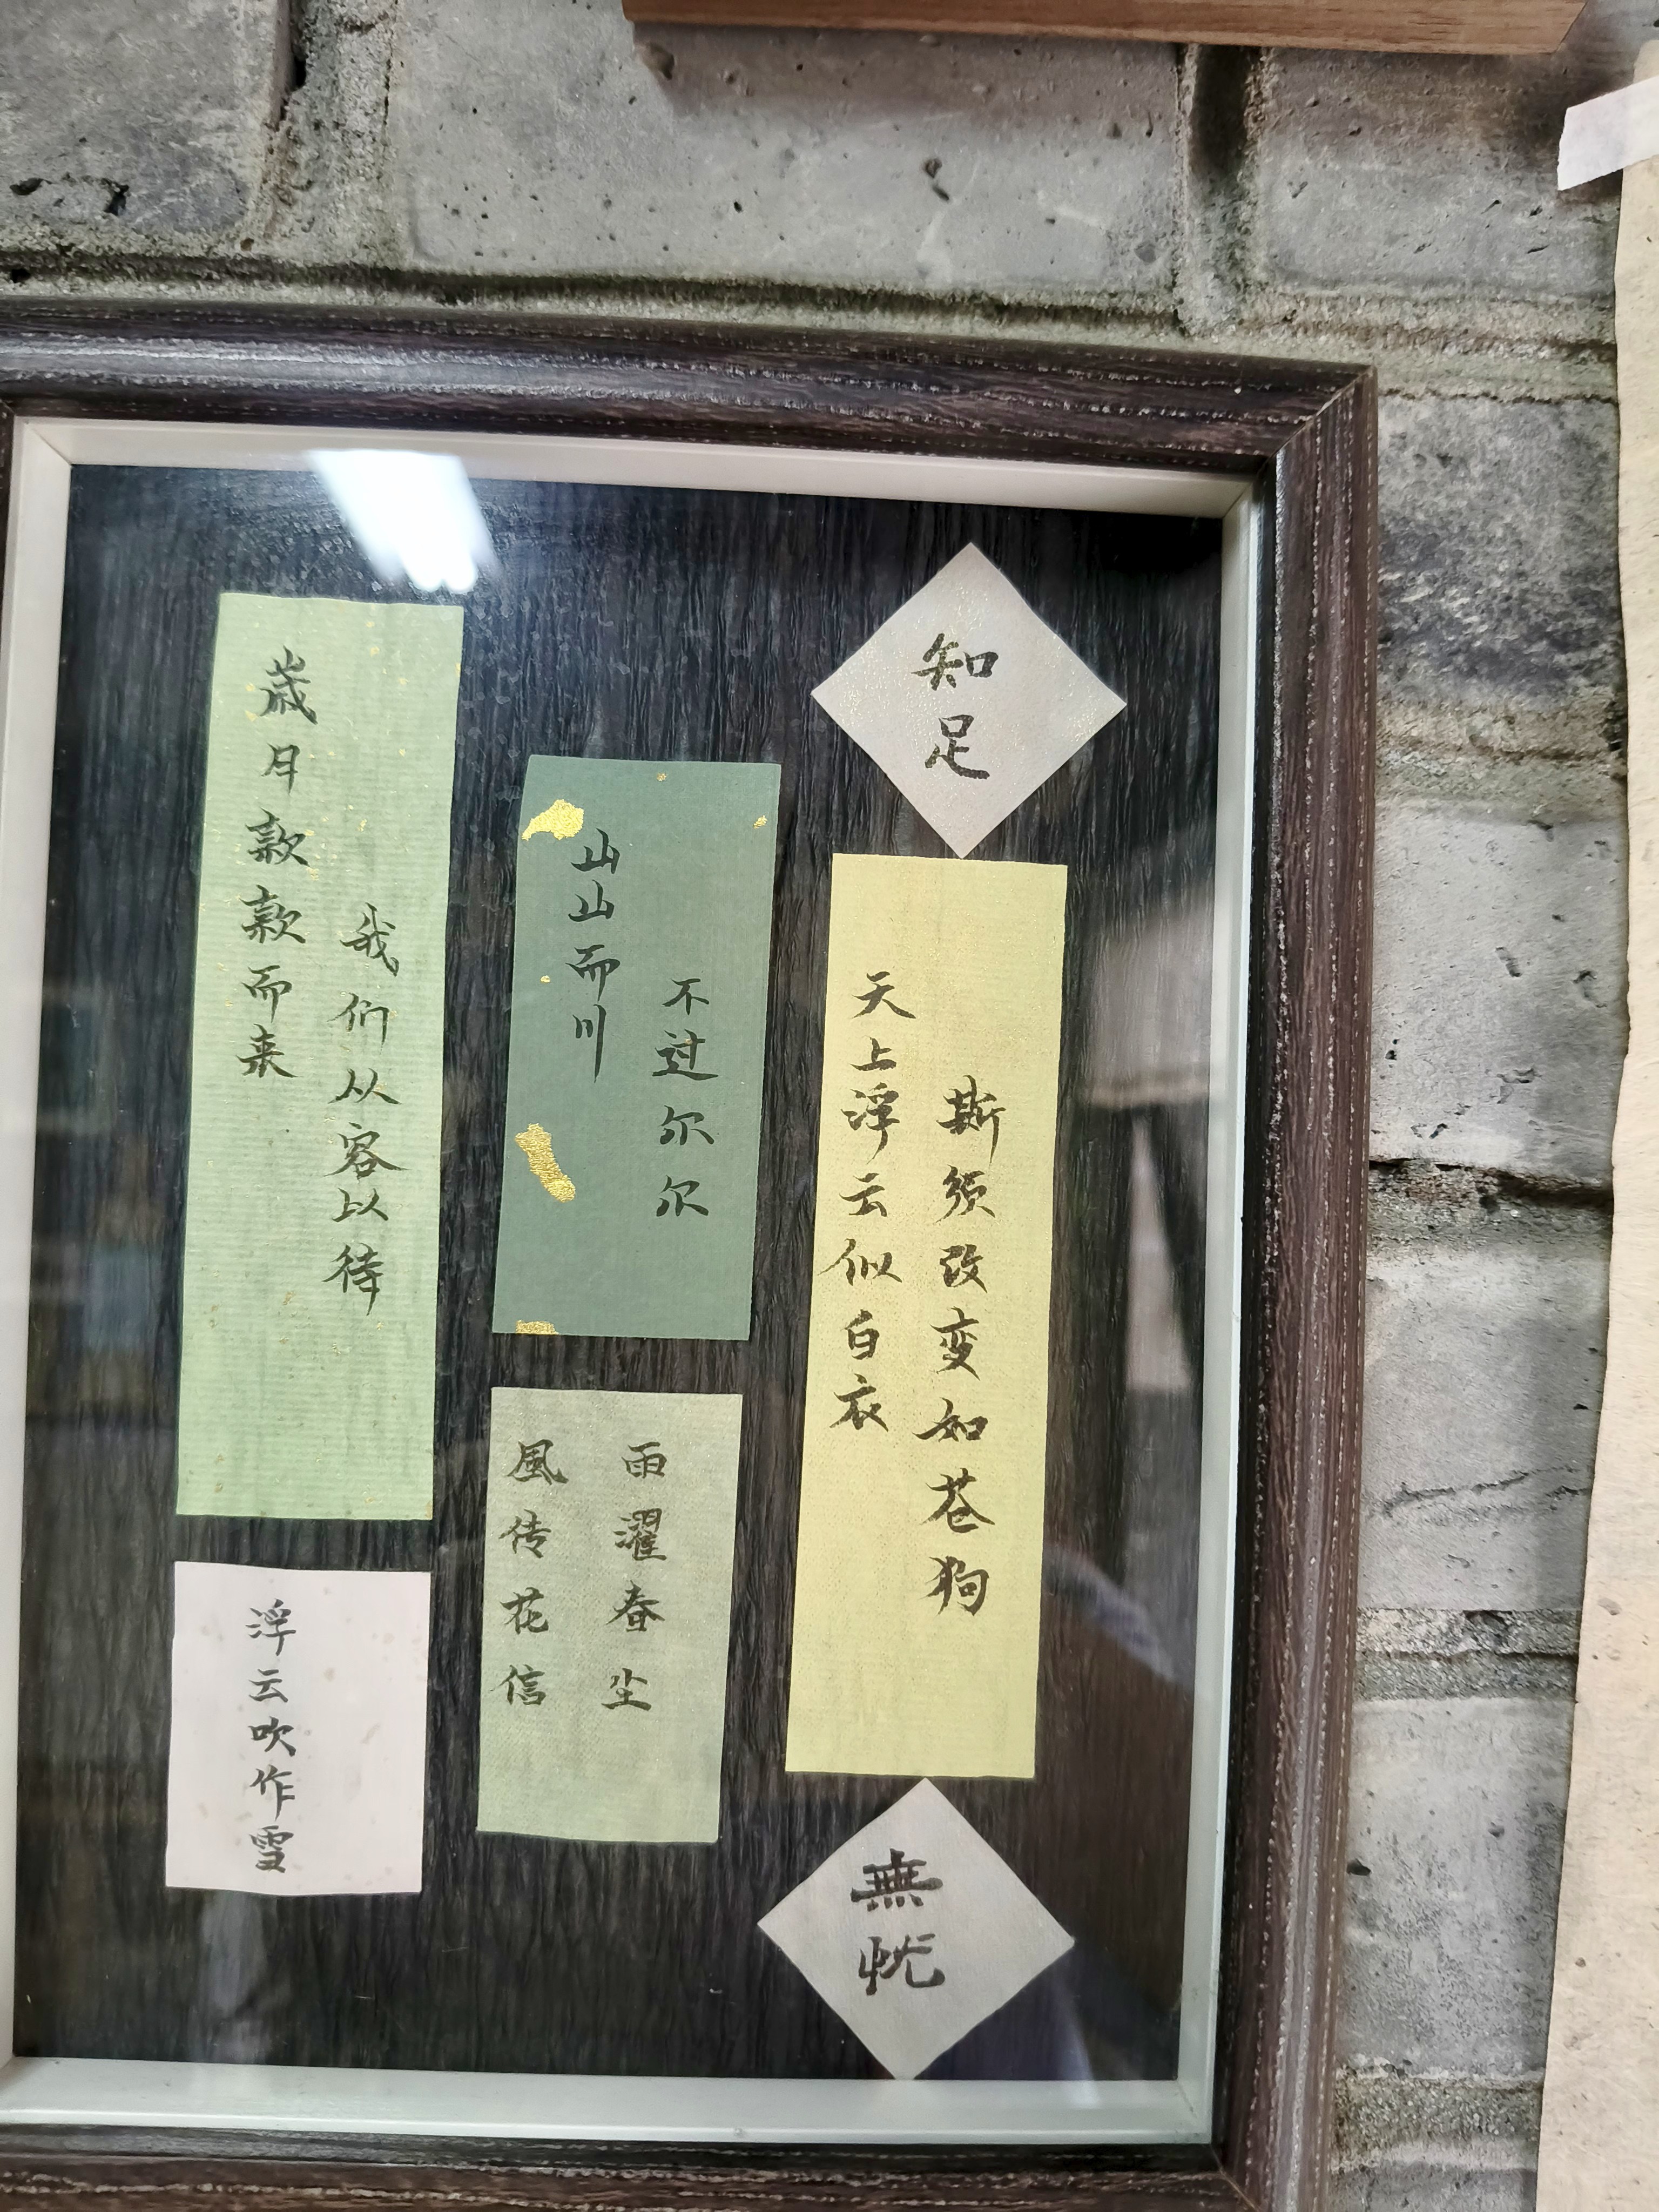 岁月款款而来
我们从容以待
浮云吹作雪
山山而川
不过尔尔
風传花信
雨濯春尘
知足
天上浮云似白衣
斯须改变如苍狗
無忧